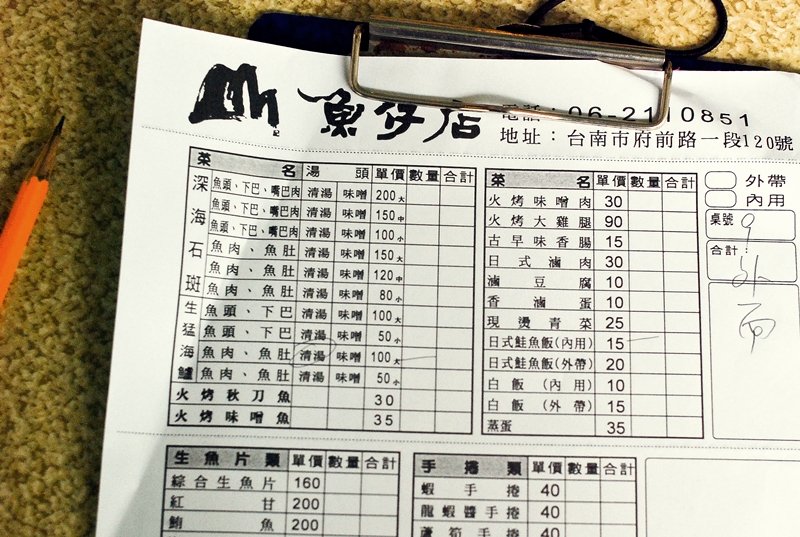 魚仔店
電話：06-2110851
地址：台南市府前路一段120號
菜名 湯頭 單價 數量 合計
深海石斑
魚頭、下巴、嘴巴肉 清湯 味噌 200大
魚頭、下巴、嘴巴肉 清湯 味噌 150中
魚頭、下巴、嘴巴肉 清湯 味噌 100小
魚肉、魚肚 清湯 味噌 150大
魚肉、魚肚 清湯 味噌 120中
魚肉、魚肚 清湯 味噌 80小
生猛海鱸
魚頭、下巴 清湯 味噌 100大
魚頭、下巴 清湯 味噌 50小
魚肉、魚肚 清湯 味噌 100大
魚肉、魚肚 清湯 味噌 50小
火烤秋刀魚 30
火烤味噌魚 35
菜名 單價 數量 合計
火烤味噌肉 30
火烤大雞腿 90
古早味香腸 15
日式滷肉 30
滷豆腐 10
香滷蛋 10
現燙青菜 25
日式鮭魚飯(內用) 15
日式鮭魚飯(外帶) 20
白飯(內用) 10
白飯(外帶) 15
蒸蛋 35
外帶
內用
桌號 9
合計：
外面
生魚片類 單價 數量 合計
綜合生魚片 160
紅甘 200
鮪魚 200
手捲類 單價 數量 合計
蝦手捲 40
龍蝦醬手捲 40
蘆筍手捲 40